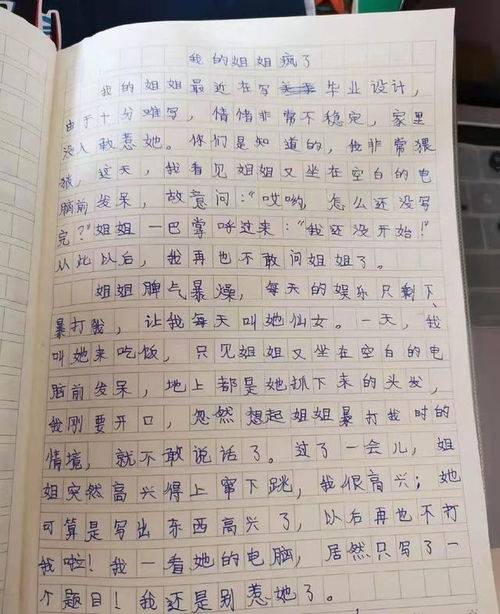 我的姐姐疯了
我的姐姐最近在写毕业设计，
由于十分难写，情绪非常不稳定，家里
没人敢惹她。你们是知道的，我非常猥
琐，这天，我看见姐姐又坐在空白的电
脑前发呆，故意问：“哎哟，怎么还没写
完？”姐姐一巴掌呼过来：“我还没开始！”
从此以后，我再也不敢问姐姐了。
姐姐脾气暴燥，每天的娱乐只剩下
暴打我，让我每天叫她仙女。一天，我
叫她来吃饭，只见姐姐又坐在空白的电
脑前发呆，地上都是她抓下来的头发，
我刚要开口，忽然想起姐姐暴打我时的
情境，就不敢说话了。过了一会儿，姐
姐突然高兴得上窜下跳，我很高兴；她
可算是写出东西高兴了，以后再也不打
我啦！我一看她的电脑，居然只写了一
个题目！我还是别惹她了。